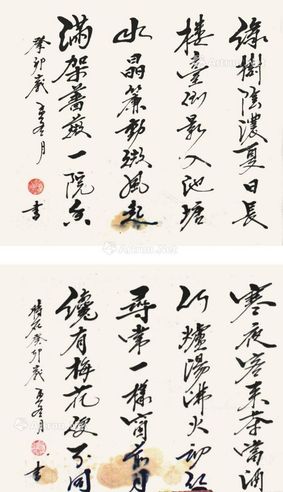 綠樹陰濃夏日長
樓臺倒影入池塘
水晶簾動微風起
滿架薔薇一院香
癸卯歲月
書
寒夜客來茶當酒
竹爐湯沸火初紅
尋常一樣窗前月
纔有梅花便不同
癸卯歲月
書